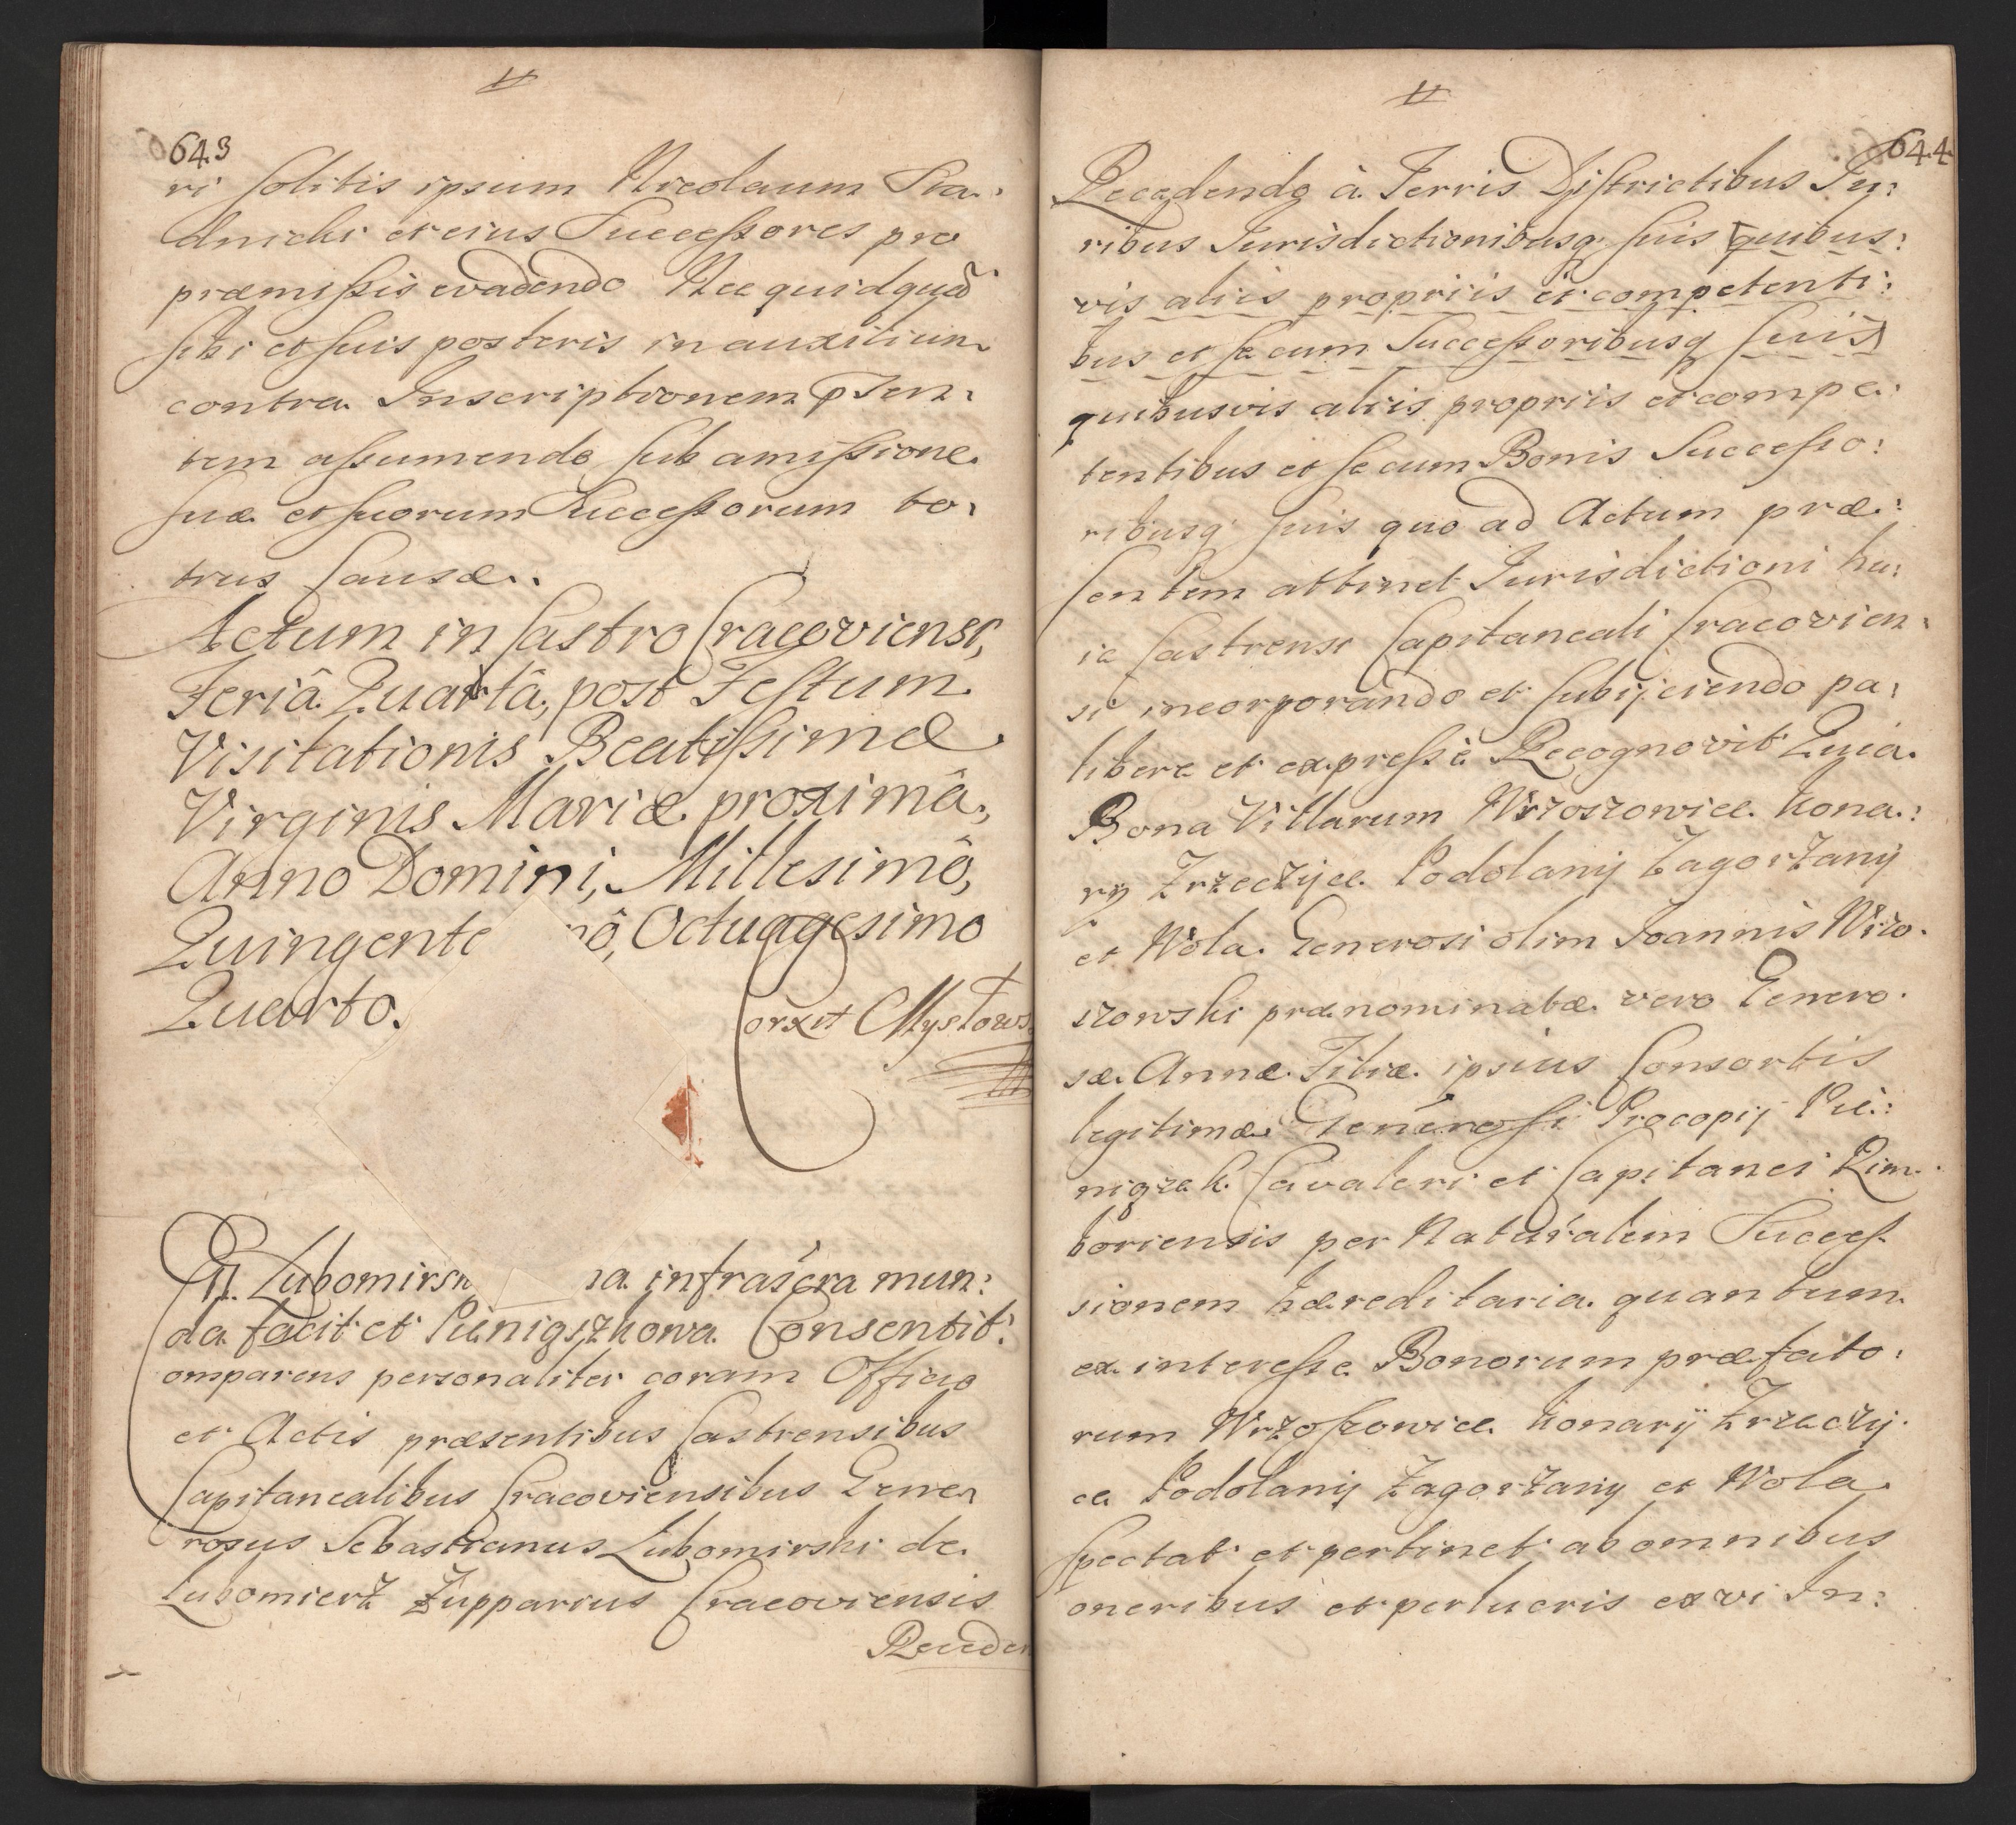 643
ri solitis ipsum Nicolaum Sta:
dnicki et eius Successores pro
præmissis evadendo Nec quidquã
sibi et suis posteris in auxilium
contra Inscriptionem pñsen:
tem assumendo sub amissione
suæ et suorum Successorum to:
tius Causæ.
Actum in Castro Cracoviensi,
Feriâ Quartâ, post Festum
Visitationis Beatissimæ
Virginis Mariæ proximâ,
Anno Domini, Millesimô,
Quingente mô, Octuagesimo
Quarto.
Corxit Mysłows
Lubomirsk na infrascra mun:
da facit et Pieniążkowa Consentit.
omparens personaliter coram Officio
et Actis præsentibus Castrensibus
Capitanealibus Cracoviensibus Gene:
rosus Sebastianus Lubomirski de
Lubomierz Zupparius Cracoviensis
Receden
644
Recedendo à Terris Districtibus Iu:
ribus Iurisdictionibusq suis quibus:
vis aliis propriis et competenti:
bus et se cum Successoribusq suis
quibusvis aliis propriis et compe:
tentibus et se cum Bonis Successo:
ribusq suis quo ad Actum præ:
sentem attinet Iurisdictioni hu:
ic Castrensi Capitaneali Cracovien:
si incorporando et subijciendo pa:
libere et expressè Recognovit Quia
Bona Villarum Wrzoszowice Kona:
ry Zrzeczyce Podolany Zagorzany
et Wola Generosi olim Joannis Wrzo:
szowski prænominatæ vero Genero:
sæ Annæ Filiæ ipsius Consortis
legitimæ Generosi Procopij Pie:
niązek Cavaleri et Capitanei Rim:
boriensis per Naturalem Succes:
sionem hæreditaria quantum
ex interesse Bonorum præfato:
rum Wrzoszowice Konary Zrzeczy:
ce Podolany Zagorzany et Wola
spectat et pertinet ab omnibus
oneribus et perlucris ex vi In: